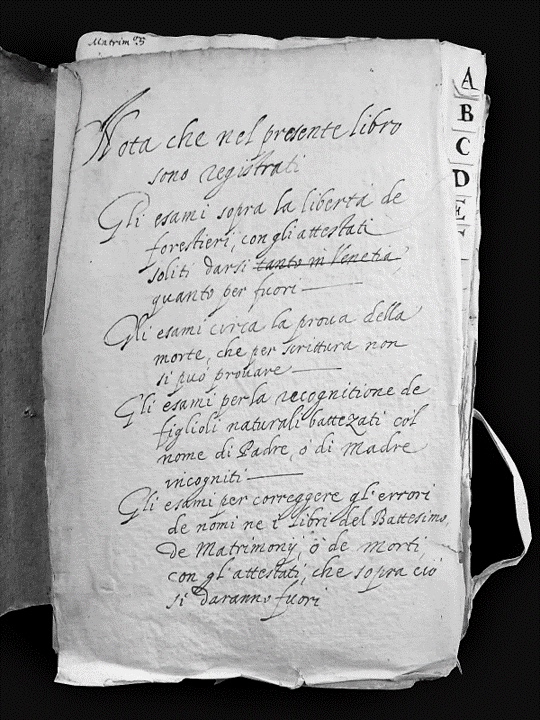 Matrim.
A
B
C
D
E
Nota che nel presente libro
sono registrati
Gli esami sopra la libertà de
forestieri, con gli attestati
soliti darsi tanto in Venetia,
quanto per fuori
Gli esami circa la proua della
morte, che per scrittura non
si può prouare
Gli esami per la recognitione de
figlioli naturali battezati col
nome di Padre, ò di Madre
incogniti
Gli esami per correggere gl'errori
de nomi ne i Libri del Battesimo,
De Matrimonij, ò de morti,
con gl'attestati, che sopra ciò
si daranno fuori